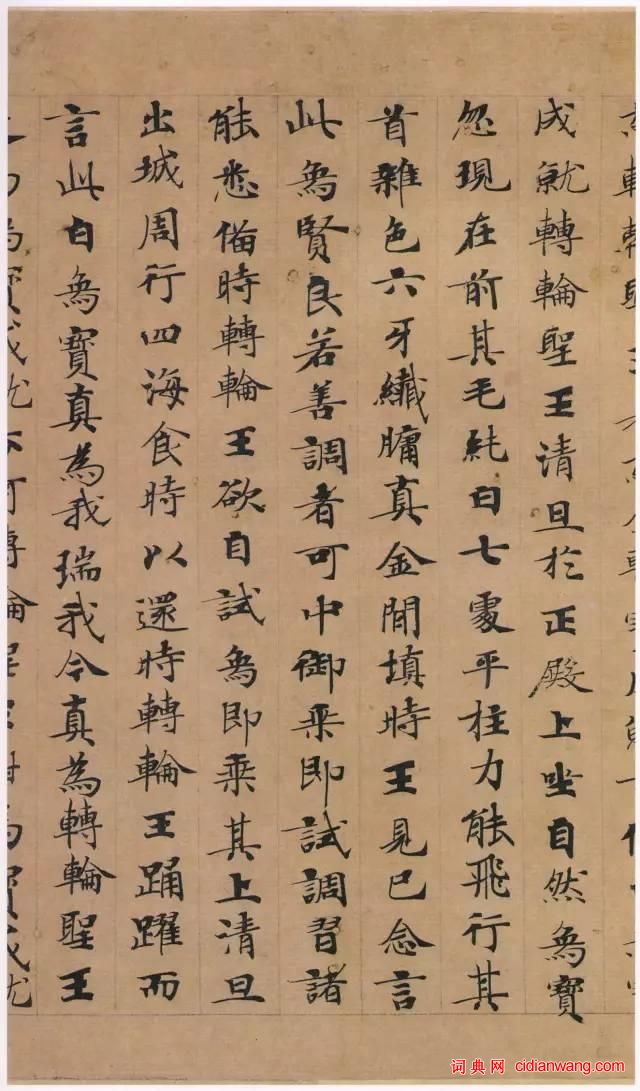 成就轉輪聖王清旦於正殿上坐自然象寶
忽現在前其毛純白七處平柱力能飛行其
首雜色六牙纖𦟛真金間填時王見已念言
此象賢良若善調者可中御乘即試調習諸
能悉備時轉輪王欲自試象即乘其上清旦
出城周行四海食時以還時轉輪王踊躍而
言此白象寶真為我瑞我今真為轉輪聖王
词典网 cidianwang.com